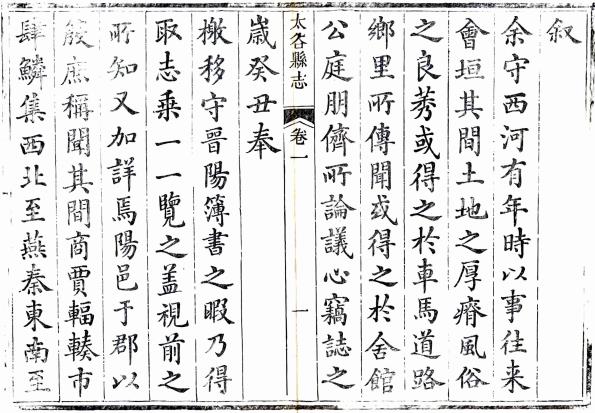 叙
余守西河有年時以事往来
會垣其間土地之厚瘠風俗
之良莠或得之於車馬道路
鄉里所傳聞或得之於舍館
公庭朋儕所論議心竊誌之
太谷縣志 卷一 一
歲癸丑奉
檄移守晉陽簿書之暇乃得
取志乗一一覽之盖視前之
所知又加詳焉陽邑于郡以
饒庶稱聞其間商賈輻輳市
肆鱗集西北至燕秦東南至